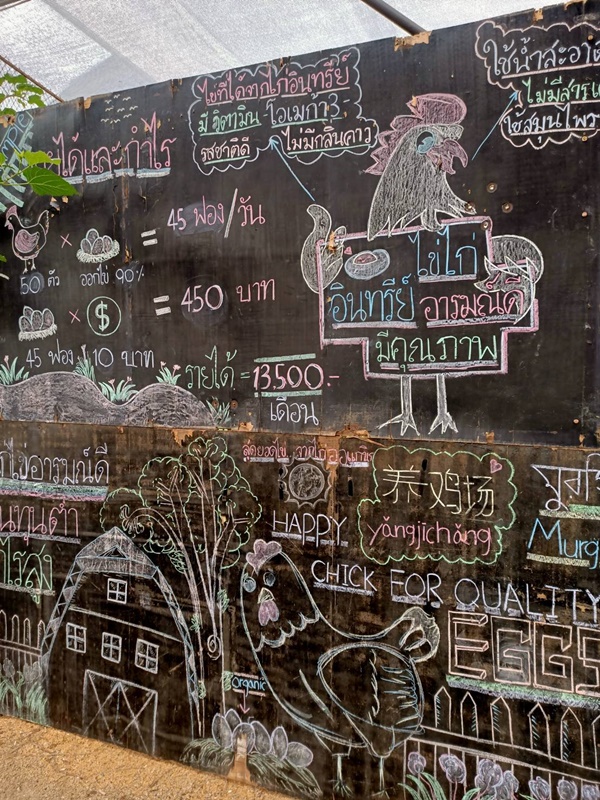 ไข่ที่ได้จากไก่อินทรีย์
มี วิตามิน โอเมก้า3
รสชาติดี ไม่มีกลิ่นคาว
ใช้น้ำสะอาด
ไม่มีสาร
ใช้สมุนไพร
ได้และกำไร
50 ตัว × ออกไข่ 90% = 45 ฟอง/วัน
× $ = 450 บาท
45 ฟอง 10 บาท
รายได้ = 13,500.-
เดือน
ไข่ไก่
อินทรีย์ อารมณ์ดี
มีคุณภาพ
ไข่อารมณ์ดี
ทุนต่ำ
ไรสูง
สุดยอดไข่ จากไก่
养鸡场
yǎngjīchǎng
HAPPY
CHICK FOR QUALITY
EGGS
Organic
Murg